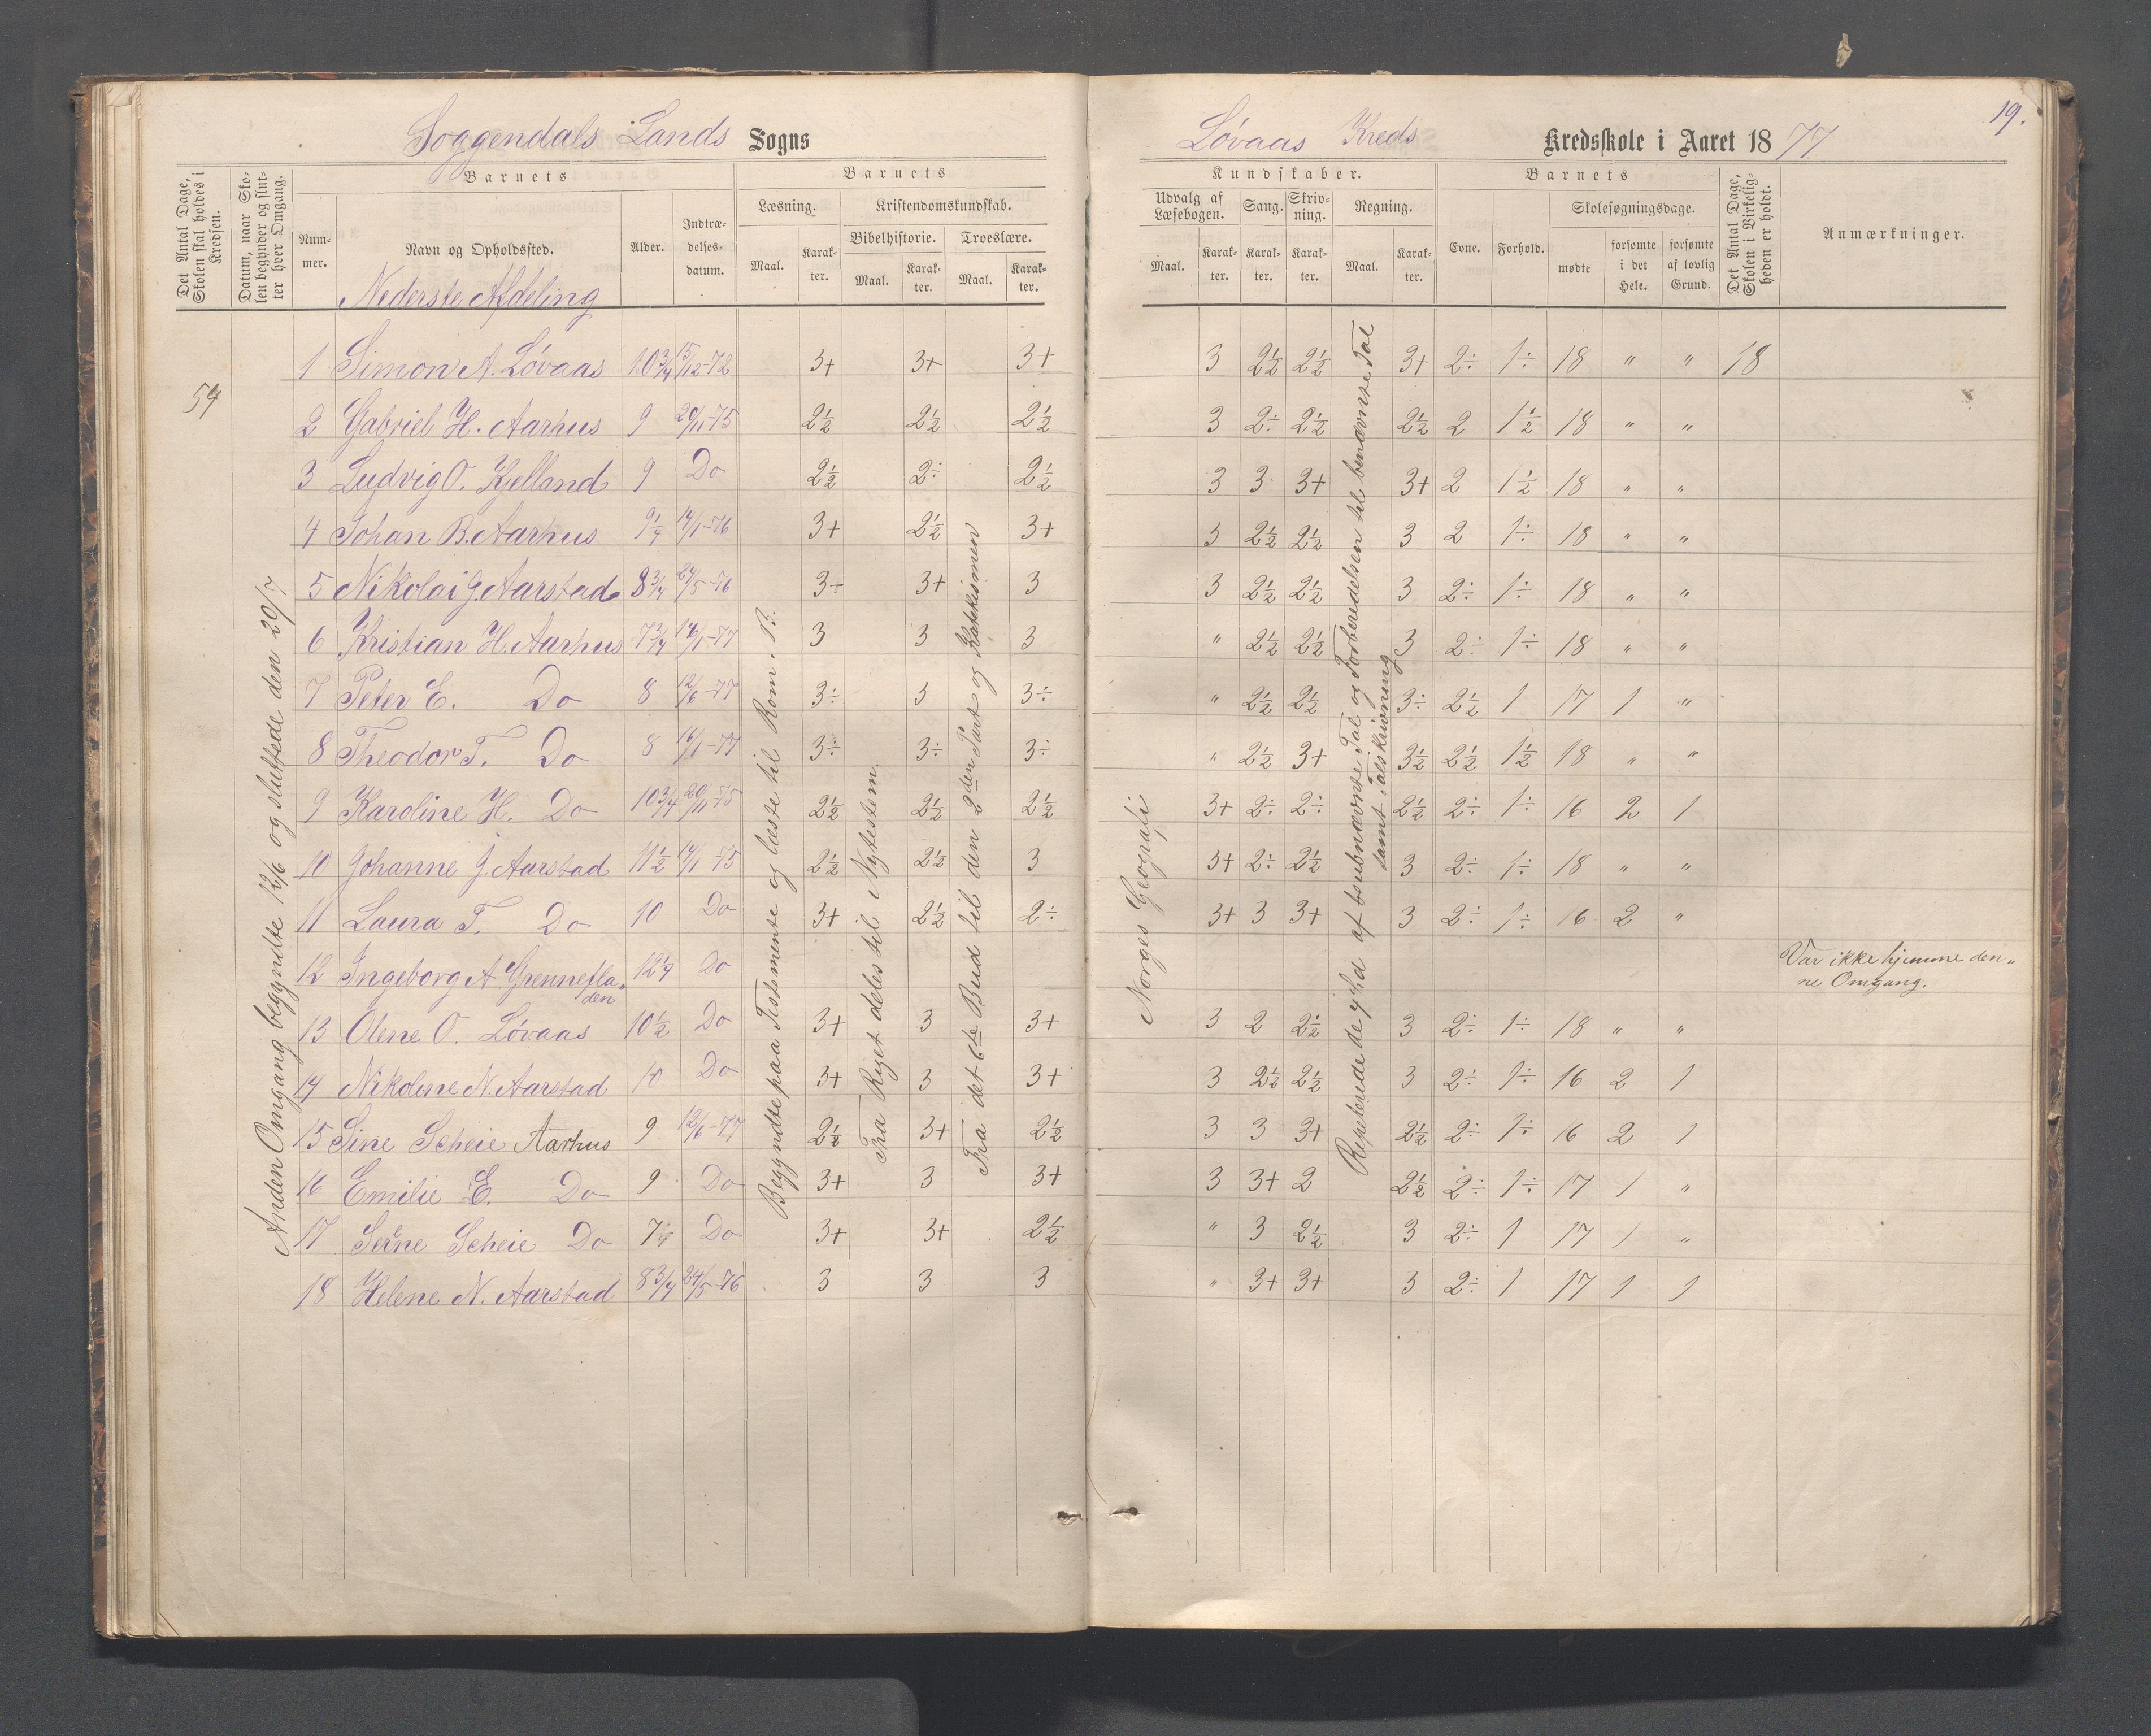 19.
Soggendals Lands Sogns
Løvaas Kreds Kredsskole i Aaret 1877
Det Antal Dage, Skolen skal holdes i Kredsen.
Datum, naar Skolen begynder og slutter hver Omgang.
Barnets
Nummer.
Navn og Opholdssted.
Alder.
Indtrædelsesdatum.
Barnets
Læsning.
Kristendomskundskab.
Bibelhistorie. Troeslære.
Maal. Karakter. Maal. Karakter. Maal. Karakter.
Kundskaber.
Udvalg af Læsebogen. Sang. Skrivning. Regning.
Maal. Karakter. Karakter. Karakter. Maal. Karakter.
Barnets
Evne. Forhold. Skolesøgningsdage.
mødte forsømte i det Hele. forsømte af lovlig Grund.
Det Antal Dage, Skolen i Virkeligheden er holdt.
Anmærkninger.
Nederste Afdeling
54
Anden Omgang begyndte 12/6 og sluttede den 20/7
Begyndte paa Testamente og læste til Rom. B.
Fra Riget deles til Nytestem.
Fra det 6te Bud til den 2den Part og Katekismen
Norges Geografi
Repeterede de 4 Sd af benævnte Tal og Forberedelsen til benævnte Tal
samt Talskrivning
1 Simon A. Løvaas 10 3/4 15/12-72 3+ 3+ 3+ 3 2½ 2½ 3+ 2÷ 1÷ 18 " " 18
2 Gabriel H. Aarhus 9 20/11-75 2½ 2½ 2½ 3 2÷ 2½ 2½ 2 1½ 18 " "
3 Ludvig O. Kjelland 9 Do 2½ 2÷ 2½ 3 3 3+ 3+ 2 1½ 18 " "
4 Johan B. Aarhus 9¼ 14/1-76 3+ 2½ 3+ 3 2½ 2½ 3 2 1÷ 18 " "
5 Nikolai J. Aarstad 8 3/4 24/5-76 3÷ 3+ 3 3 2½ 2½ 3 2÷ 1÷ 18 " "
6 Kristian H. Aarhus 7 3/4 16/1-77 3 3 3 " 2½ 2½ 3 2÷ 1÷ 18 " "
7 Peter E. Do 8 12/6-77 3÷ 3 3÷ " 2½ 2½ 3÷ 2½ 1 17 1 "
8 Theodor T. Do 8 16/1-77 3÷ 3÷ 3÷ " 2½ 3+ 3½ 2½ 1½ 18 " "
9 Karoline H. Do 10 3/4 20/11-75 2½ 2½ 2½ 3+ 2÷ 2÷ 2½ 2÷ 1÷ 16 2 1
10 Johanne J. Aarstad 11½ 14/1-75 2½ 2½ 3 3+ 2÷ 2½ 3 2÷ 1÷ 18 " "
11 Laura T. Do 10 Do 3+ 2½ 2÷ 3+ 3 3+ 3 2÷ 1÷ 16 2 "
12 Ingeborg A Grenneflaaden 12¼ Do Var ikke hjemme den„
ne Omgang.
13 Olene O. Løvaas 10½ Do 3+ 3 3+ 3 2 2½ 3 2÷ 1÷ 18 " "
14 Nikoline N. Aarstad 10 Do 3+ 3 3+ 3 2½ 2½ 3 2÷ 1÷ 16 2 1
15 Sine Scheie Aarhus 9 12/6-77 2½ 3+ 2½ 3 3 3+ 2½ 2÷ 1÷ 16 2 1
16 Emilie E. Do 9 Do 3+ 3 3+ 3 3+ 2 2½ 2÷ 1÷ 17 1 "
17 Serne Scheie Do 7 Do 3+ 3+ 2½ " 3 2½ 3 2÷ 1 17 1 "
18 Helene N. Aarstad 8 3/4 24/5-76 3 3 3 " 3+ 3+ 3 2÷ 1 17 1 1